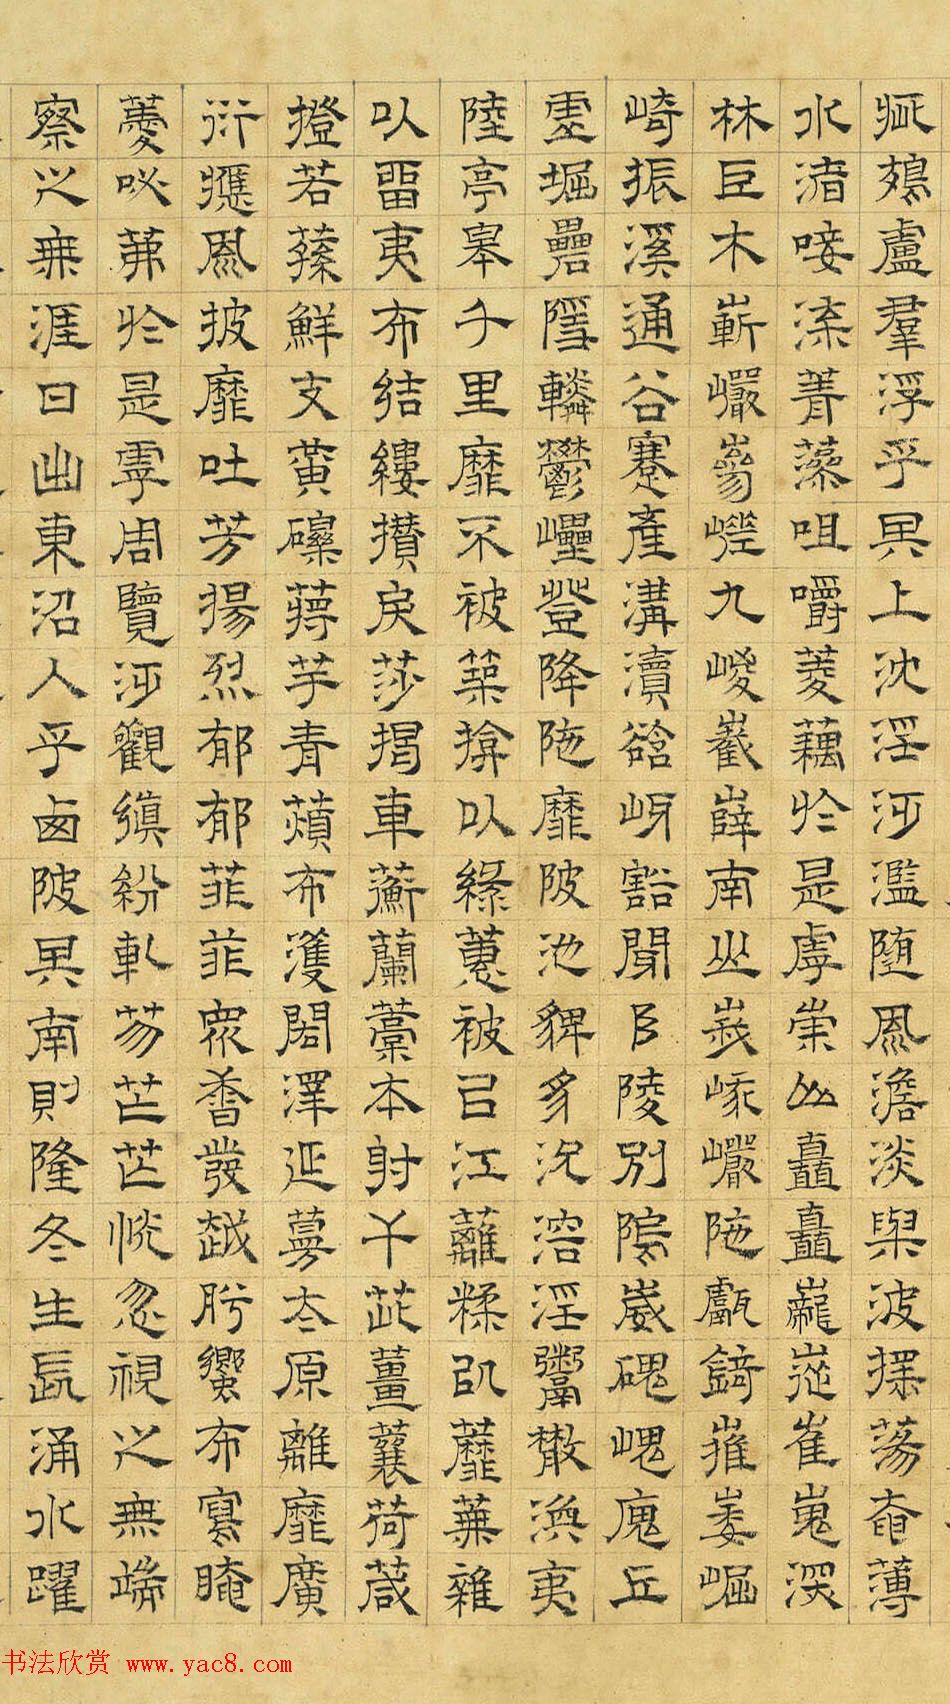 疵鵁盧羣浮乎其上沈淫汎濫隨風澹淡與波搖蕩奄薄
水渚唼渿菁藻咀嚼菱藕於是虖崇山矗矗巃嵸崔嵬深
林巨木嶄巖嵾嵯九嵕嶻嶭南山峩峨巖陁甗錡嶊崣崛
崎振溪通谷蹇產溝瀆谽岈豁閜阜陵別隝崴磈嵬廆丘
虛堀礨隱轔鬱壘登降陁靡陂池貏豸沇溶淫鬻散渙夷
陸亭皋千里靡不被築揜以綠蕙被以江蘺糅以蘪蕪雜
以留夷布結縷攢戾莎揭車蘅蘭槀本射干茈薑蘘荷葴
橙若蓀鮮支黃礫蔣芋青薠布濩閎澤延蔓太原離靡廣
衍應風披靡吐芳揚烈郁郁菲菲衆香發越肸蠁布寫晻
薆咇茀於是虖周覽汎觀縝紛軋芴芒芒恍忽視之無端
察之無涯日出東沼入乎西陂其南則隆冬生長涌水躍
书法欣赏 www.yac8.com